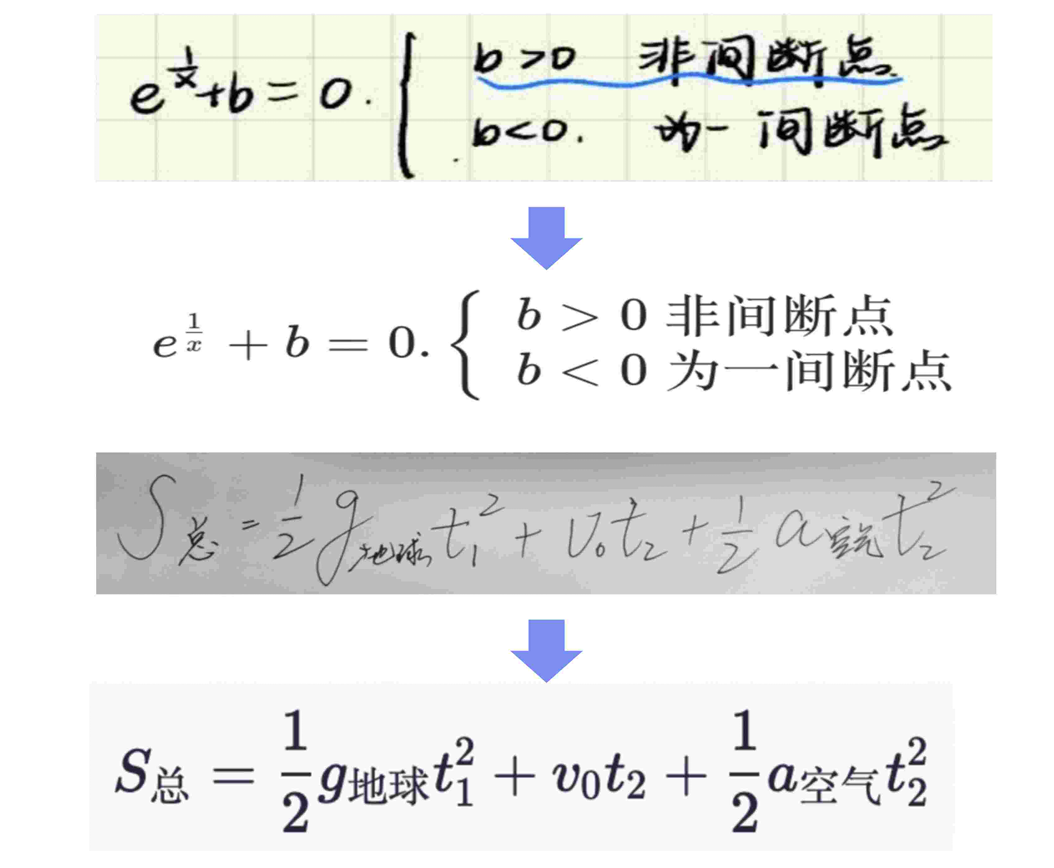 e^{\frac{1}{x}}+b=0. { b>0 非间断点
b<0. 为一间断点
e^{\frac{1}{x}} + b = 0. { b > 0 非间断点
b < 0 为一间断点
S_总 = \frac{1}{2} g_地球 t_1^2 + v_0 t_2 + \frac{1}{2} a_空气 t_2^2
S_总 = \frac{1}{2} g_地球 t_1^2 + v_0 t_2 + \frac{1}{2} a_空气 t_2^2